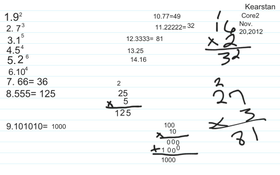 Kearstan
Core2
Nov.
20,2012
1.9²
2. 7³
3.1⁵
4.5⁴
5.2⁶
6.10⁴
7. 66= 36
8.555= 125
9.101010= 1000
10.77=49
11.22222= 32
12.3333= 81
13.25
14.16
2
25
x 5
125
100
x 10
000
+1000
1000
1
16
x 2
32
2
27
x 3
81